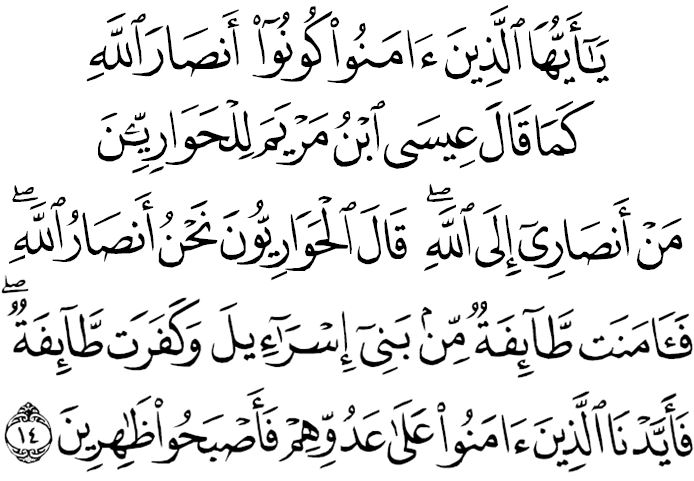 يَـٰٓأَيُّهَا ٱلَّذِينَ ءَامَنُوا۟ كُونُوٓا۟ أَنصَارَ ٱللَّهِ
كَمَا قَالَ عِيسَى ٱبْنُ مَرْيَمَ لِلْحَوَارِيِّـۧنَ
مَنْ أَنصَارِىٓ إِلَى ٱللَّهِ ۖ قَالَ ٱلْحَوَارِيُّونَ نَحْنُ أَنصَارُ ٱللَّهِ ۖ
فَـَٔامَنَت طَّآئِفَةٌ مِّنۢ بَنِىٓ إِسْرَٰٓءِيلَ وَكَفَرَت طَّآئِفَةٌ ۖ
فَأَيَّدْنَا ٱلَّذِينَ ءَامَنُوا۟ عَلَىٰ عَدُوِّهِمْ فَأَصْبَحُوا۟ ظَـٰهِرِينَ ١٤